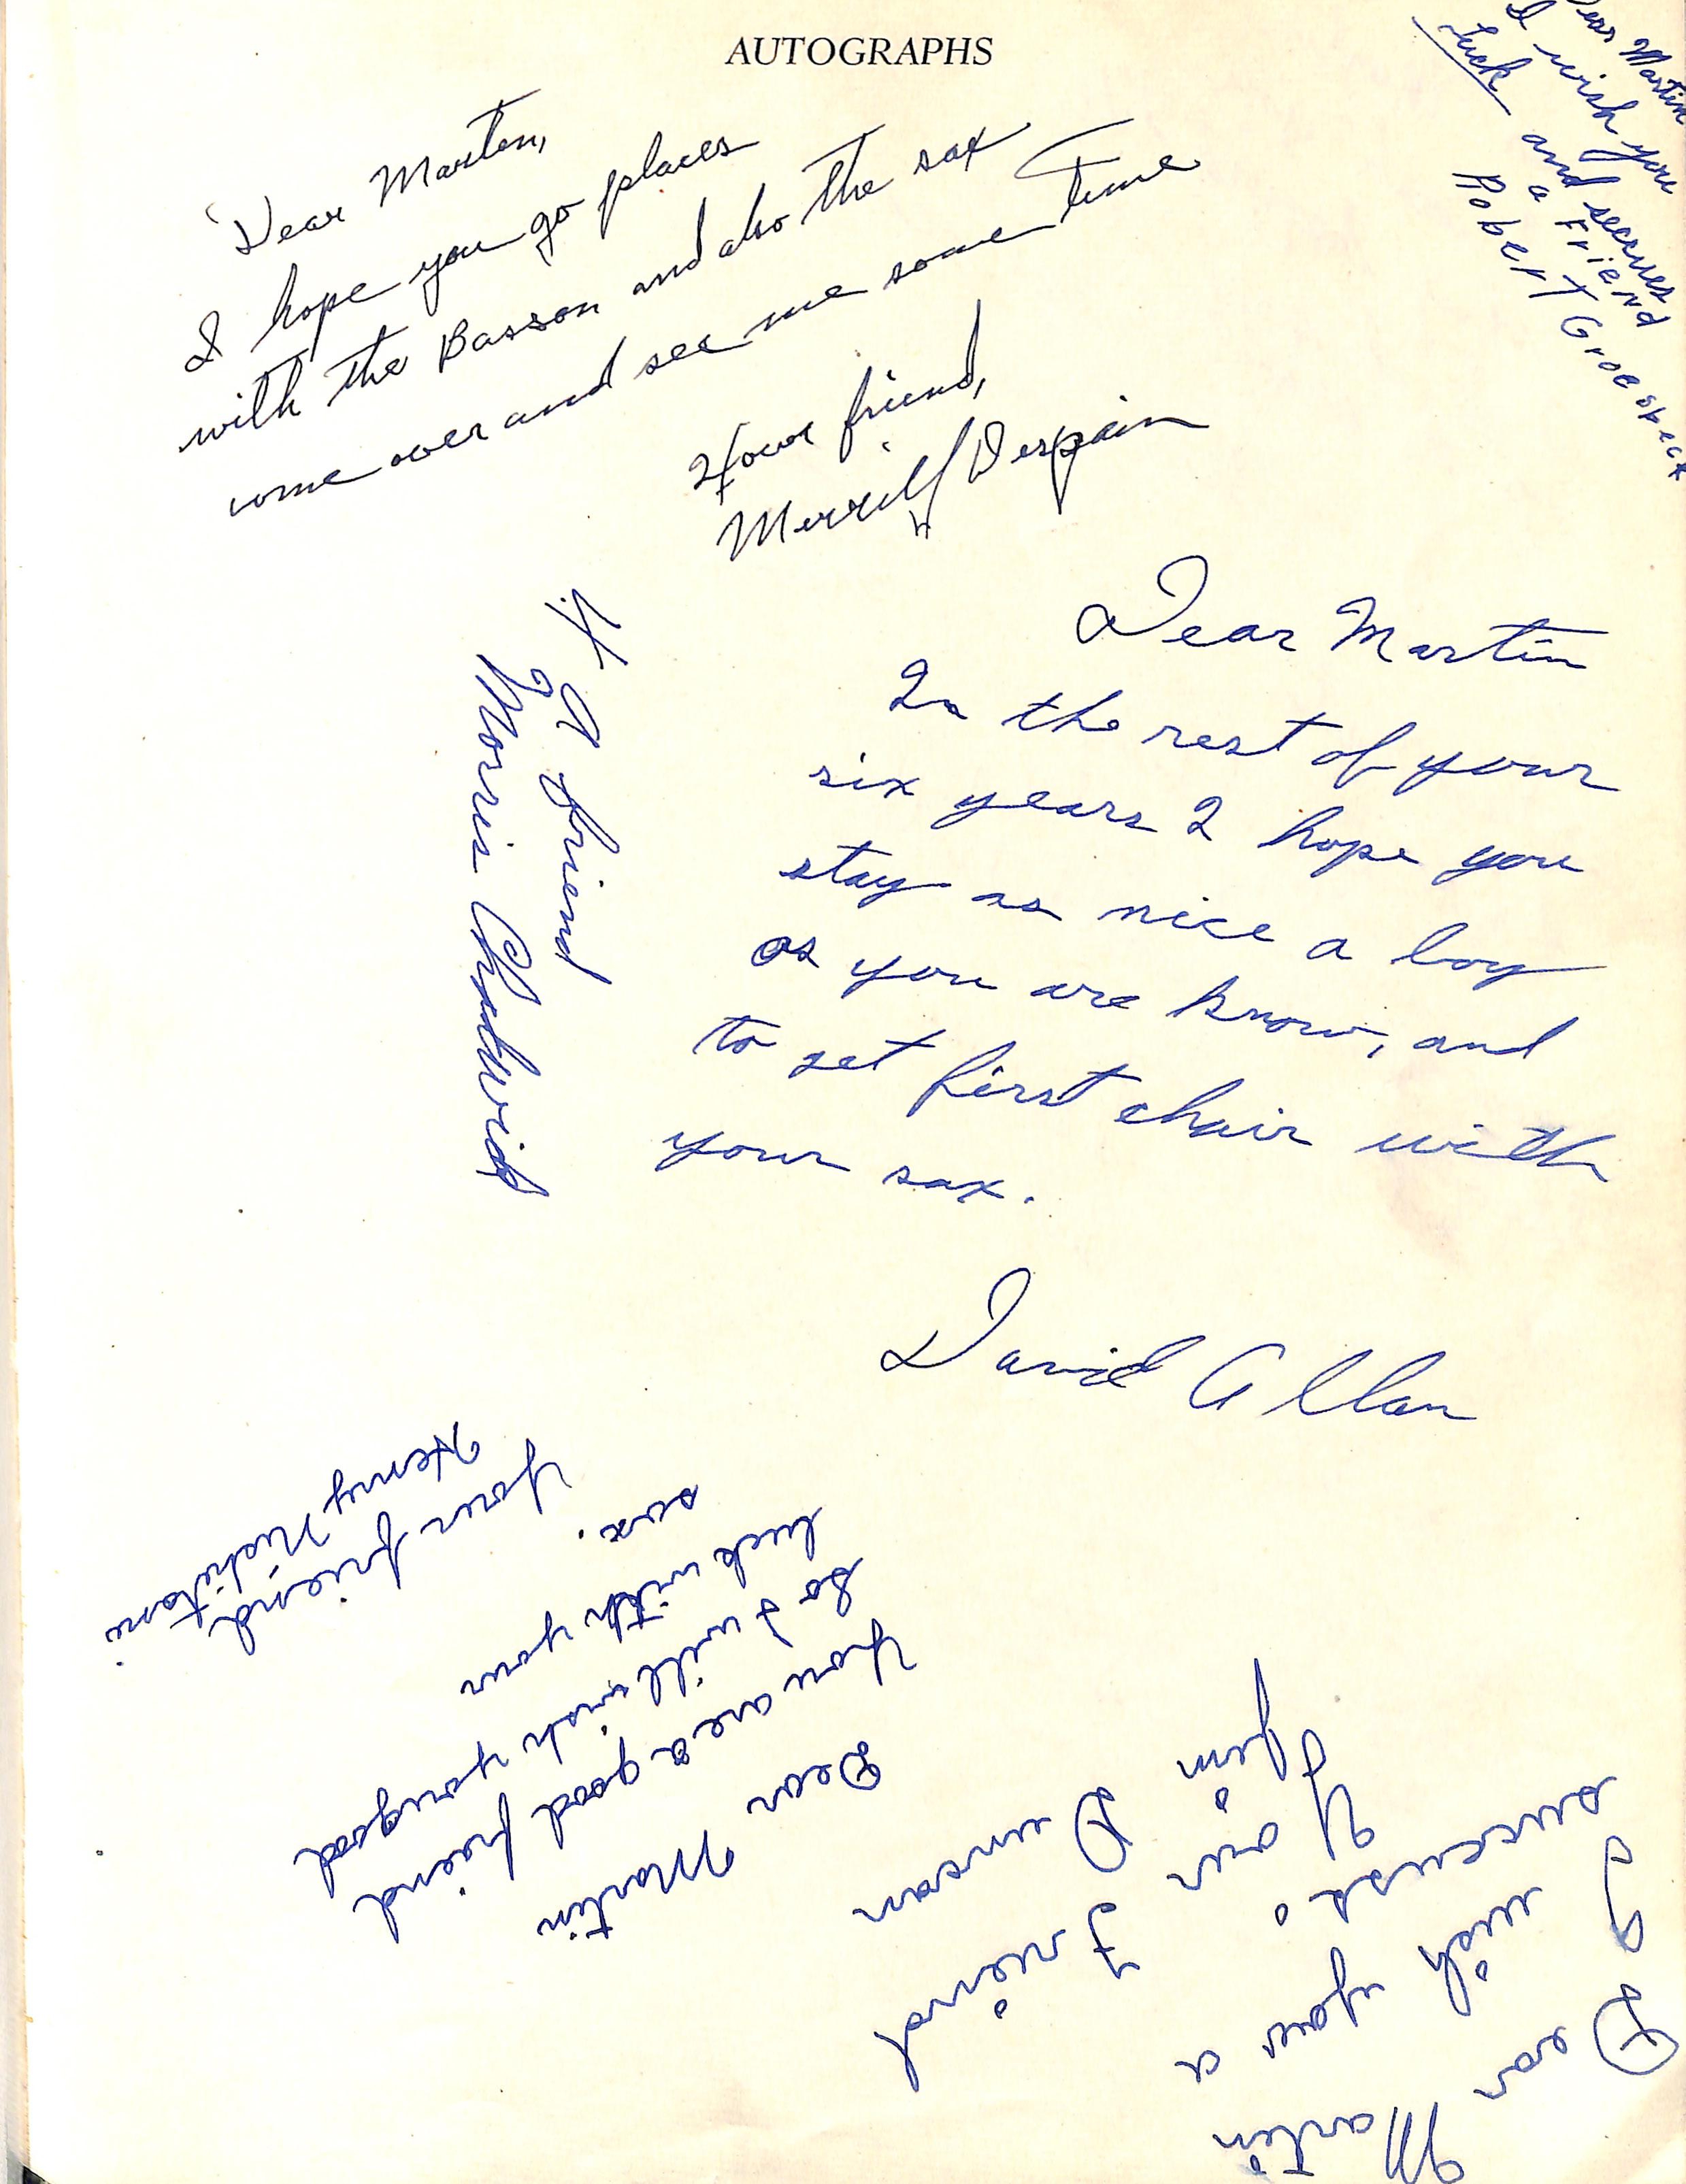 AUTOGRAPHS
Dear Martin
I wish you
Luck and secrues
a Friend
Robert Groesbeck
Dear Marten,
I hope you go places
with the Basson and also the sax
come over and see me some time
Your friend,
Merrill Despain
Dear Martin
In the rest of your
six years I hope you
stay as nice a boy
as you are know, and
to set first chair with
your sax.
David Allan
A friend
Morris Chadwick
Dear Martin
You are a good friend
So I will wish you good
luck with your
sax.
Your friend,
Henry Nishitani
Dear Martin
I wish you a
success.
Your Friend
Jim Duncan